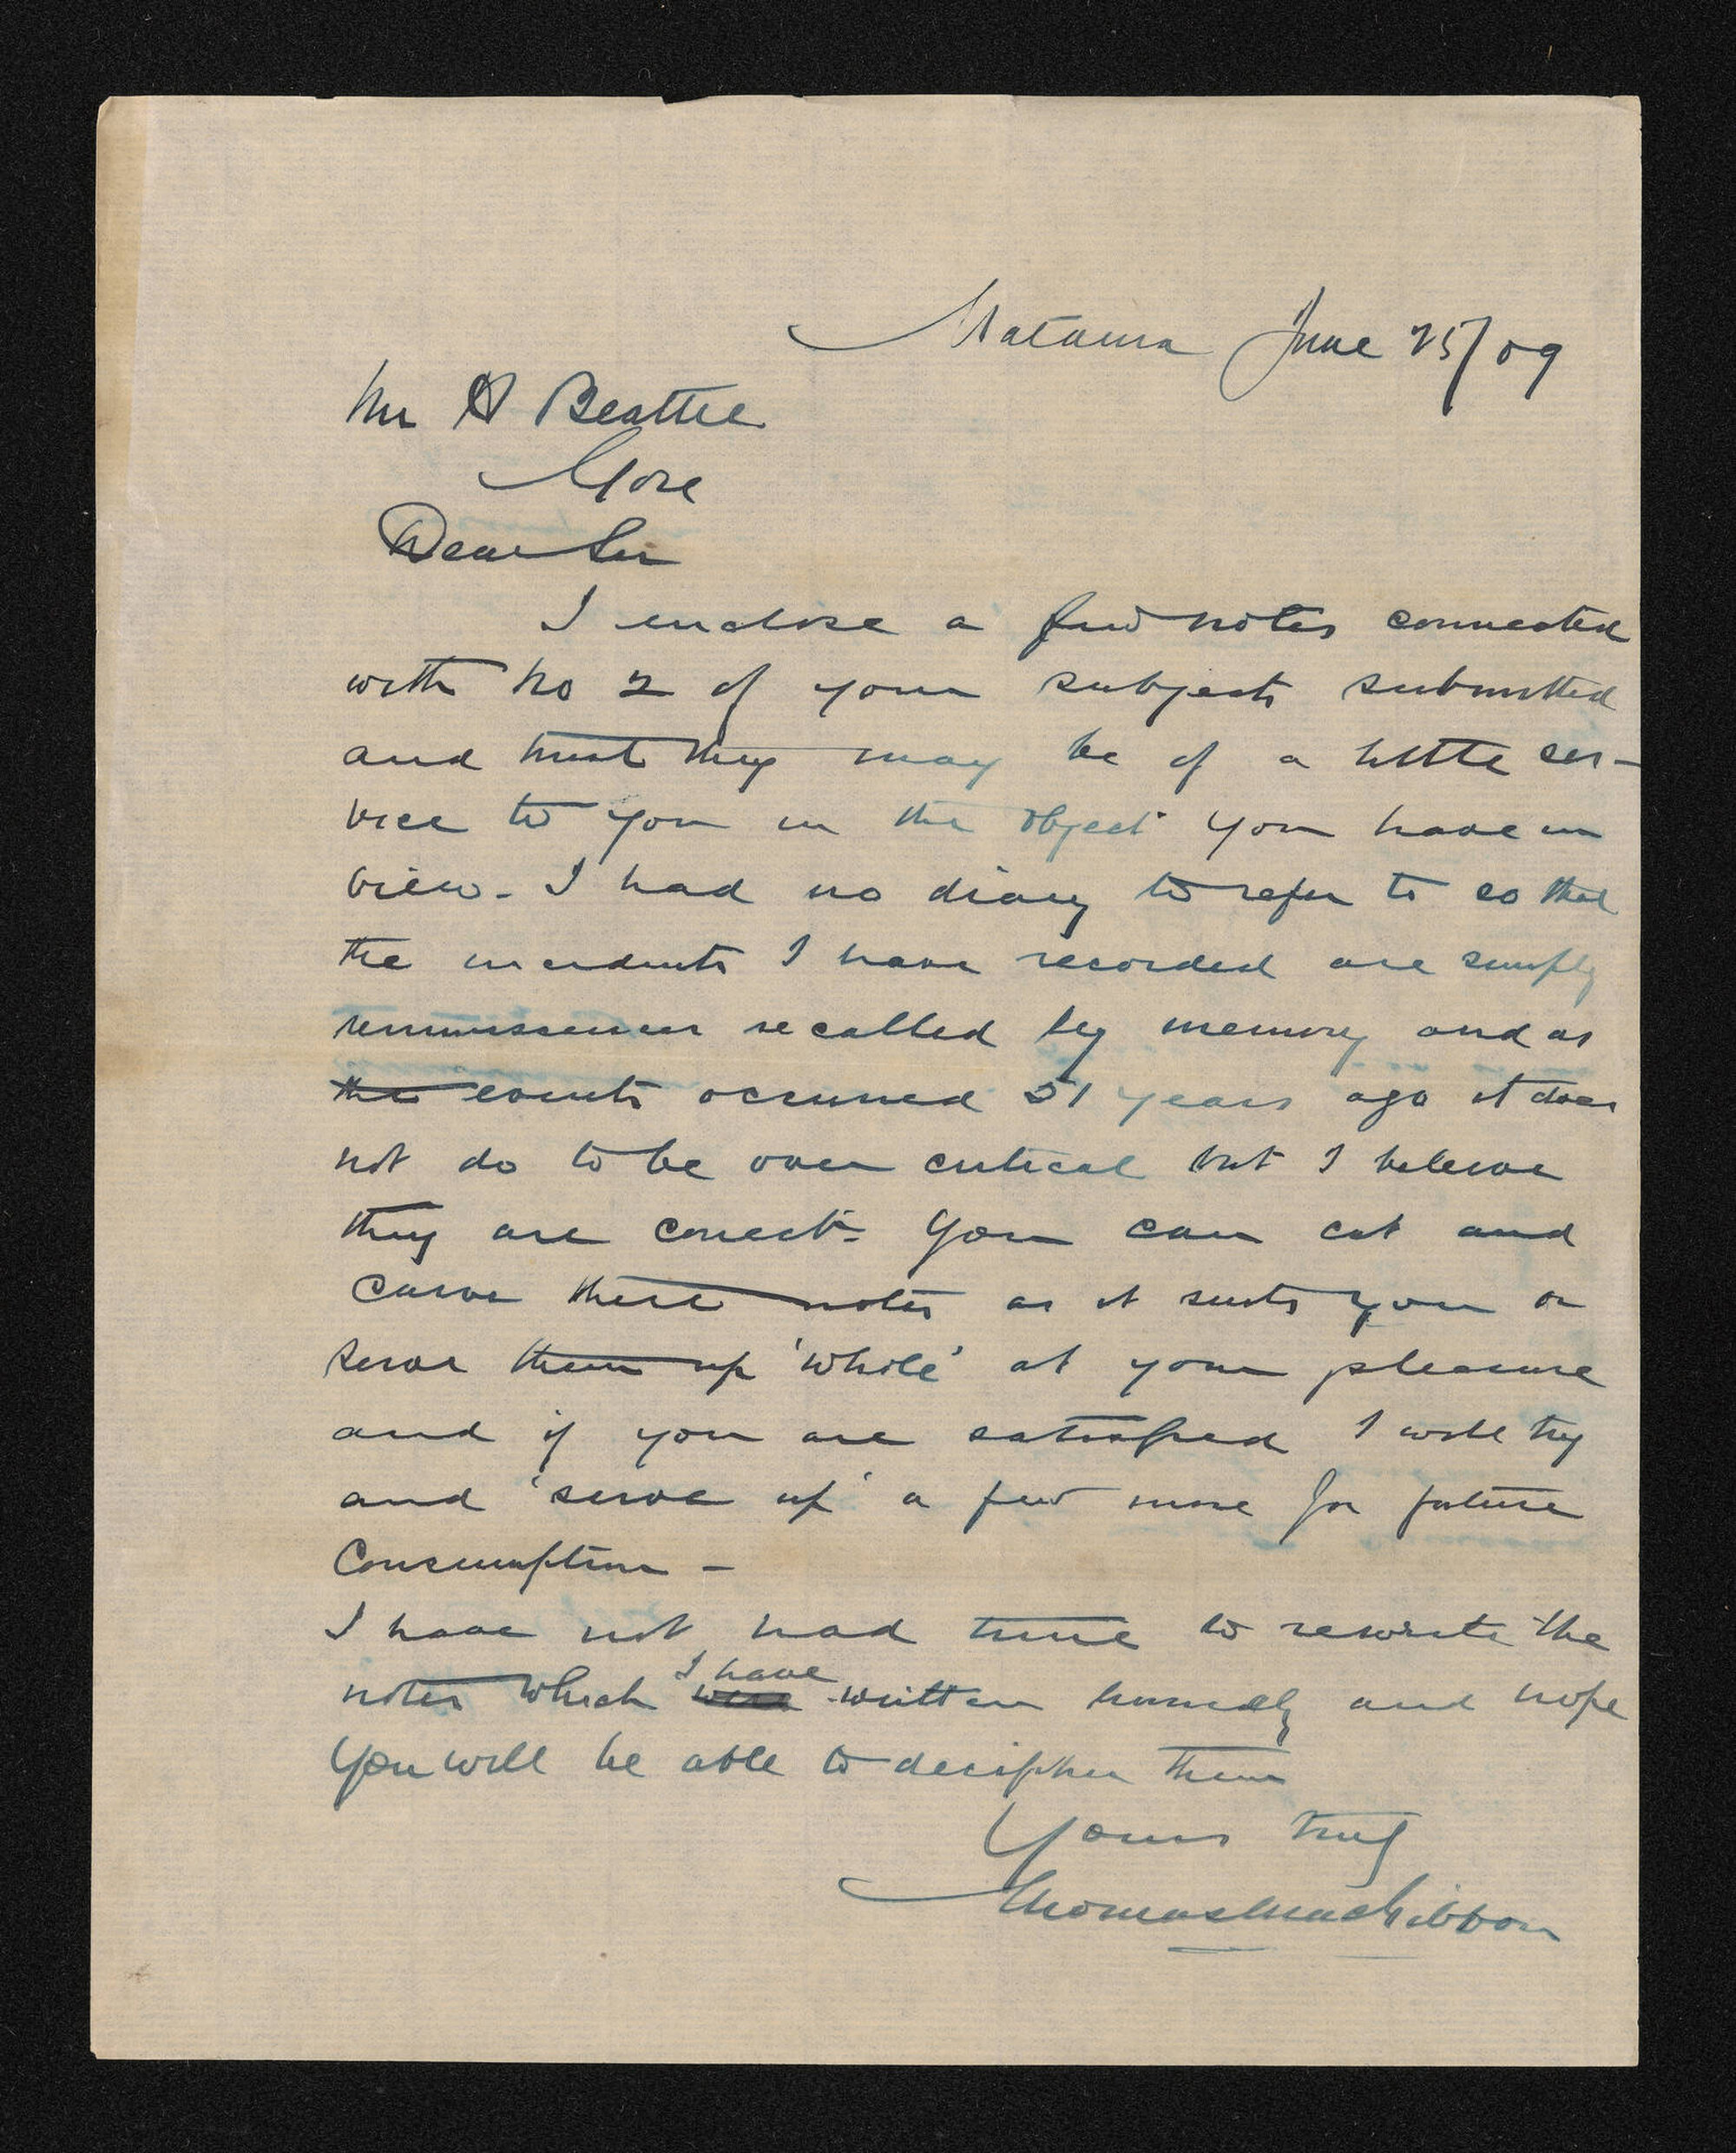 Mataura June 25/09
Mr H Beattie
Gore
Dear Sir
I enclose a few notes connected
with No 2 of your subjects submitted
and trust they may be of a little ser-
vice to you in the object you have in
view. I had no diary to refer to so that
the incidents I have recorded are simply
reminissences recalled by memory and as
the events occurred 51 years ago it does
not do to be over critical but I believe
they are correct. You can cut and
carve these notes as it suits you or
serve them up 'whole' at your pleasure
and if you are satisfied I will try
and 'serve up' a few more for future
consumption -
I have not had time to rewrite the
I have
notes which were written hurriedly and hope
you will be able to decipher them
Yours truly
Thomas MacGibbon